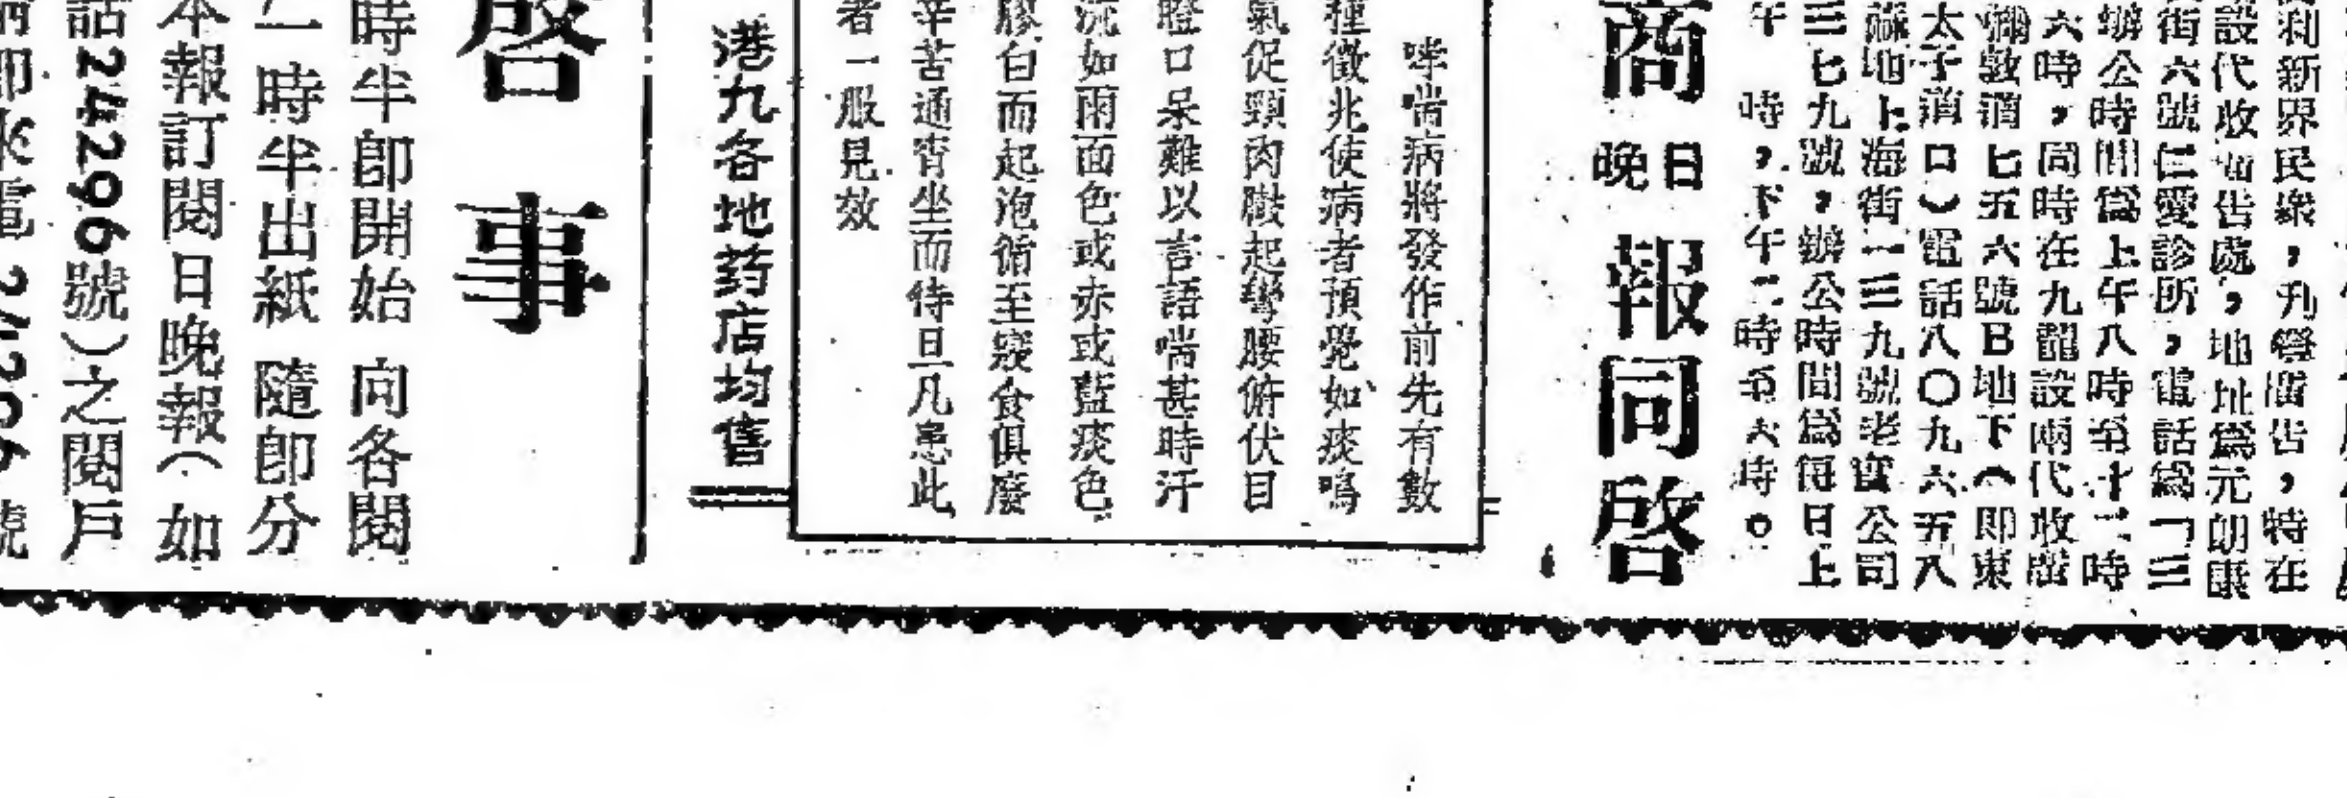 利新界民衆，刋登廣告，特在
設代收廣告處，地址爲元朗康
街六號仁愛診所，電話爲「三
辦公時間爲上午八時至十二時
六時，同時在九龍設兩代收廣
彌敦道七五六號B地下（即東
太子道口）電話八〇九六五八
蔴地上海街一三九號老寶公司
三七九號，辦公時間爲每日上
午　時，下午二時至六時。
商日晚報同啓
哮喘病將發作前先有數
種徵兆使病者預覺如痰鳴
氣促頸肉脹起彎腰俯伏目
瞪口呆難以言語喘甚時汗
流如雨面色或赤或藍痰色
膠白而起泡循至寢食俱廢
辛苦通宵坐而待旦凡患此
者一服見效
港九各地葯店均售
啓事
時半即開始 向各閱
時半出紙 隨即分
本報訂閱日晚報（如
話242966號）之閱戶
即來電 24296號